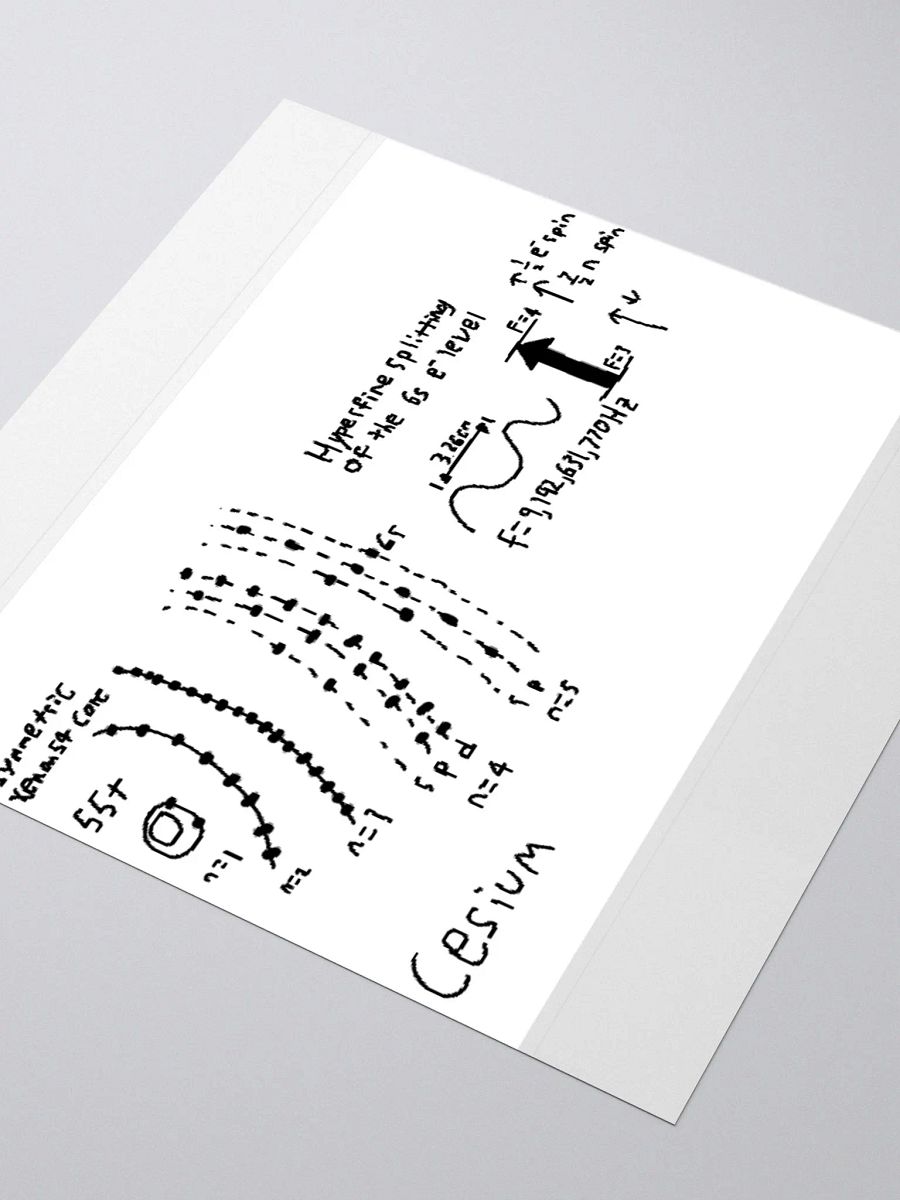 Symmetric
Xenon54 Core
55+
n=1
n=2
n=3
s p d
n=4
s p
n=5
6s
Hyperfine splitting
Of the 6s e⁻ level
3.26cm
f=9,192,631,770Hz
F=4
F=3
↑ 1/2 e⁻ spin
↑ 7/2 n spin
Cesium